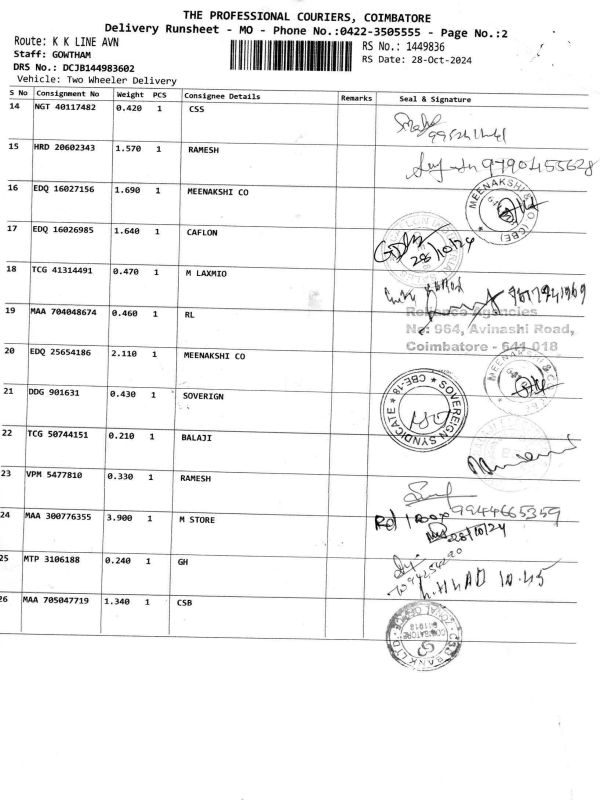 THE PROFESSIONAL COURIERS, COIMBATORE
Delivery Runsheet - MO - Phone No.:0422-3505555 - Page No.:2
Route: K K LINE AVN
Staff: GOWTHAM
DRS No.: DCJB144983602
Vehicle: Two Wheeler Delivery
RS No.: 1449836
RS Date: 28-Oct-2024
S No Consignment No Weight PCS Consignee Details Remarks Seal & Signature
14 NGT 40117482 0.420 1 CSS
15 HRD 20602343 1.570 1 RAMESH 9790455628
16 EDQ 16027156 1.690 1 MEENAKSHI CO
17 EDQ 16026985 1.640 1 CAFLON 28/10/24
18 TCG 41314491 0.470 1 M LAXMIO
19 MAA 704048674 0.460 1 RL
Reliance Agencies
No: 964, Avinashi Road,
Coimbatore - 641 018
20 EDQ 25654186 2.110 1 MEENAKSHI CO
21 DDG 901631 0.430 1 SOVERIGN
SOVEREIGN SYNDICATE * CBE-18 *
22 TCG 50744151 0.210 1 BALAJI
23 VPM 5477810 0.330 1 RAMESH
9944665359
24 MAA 300776355 3.900 1 M STORE
28/10/24
25 MTP 3106188 0.240 1 GH
10.45
26 MAA 705047719 1.340 1 CSB